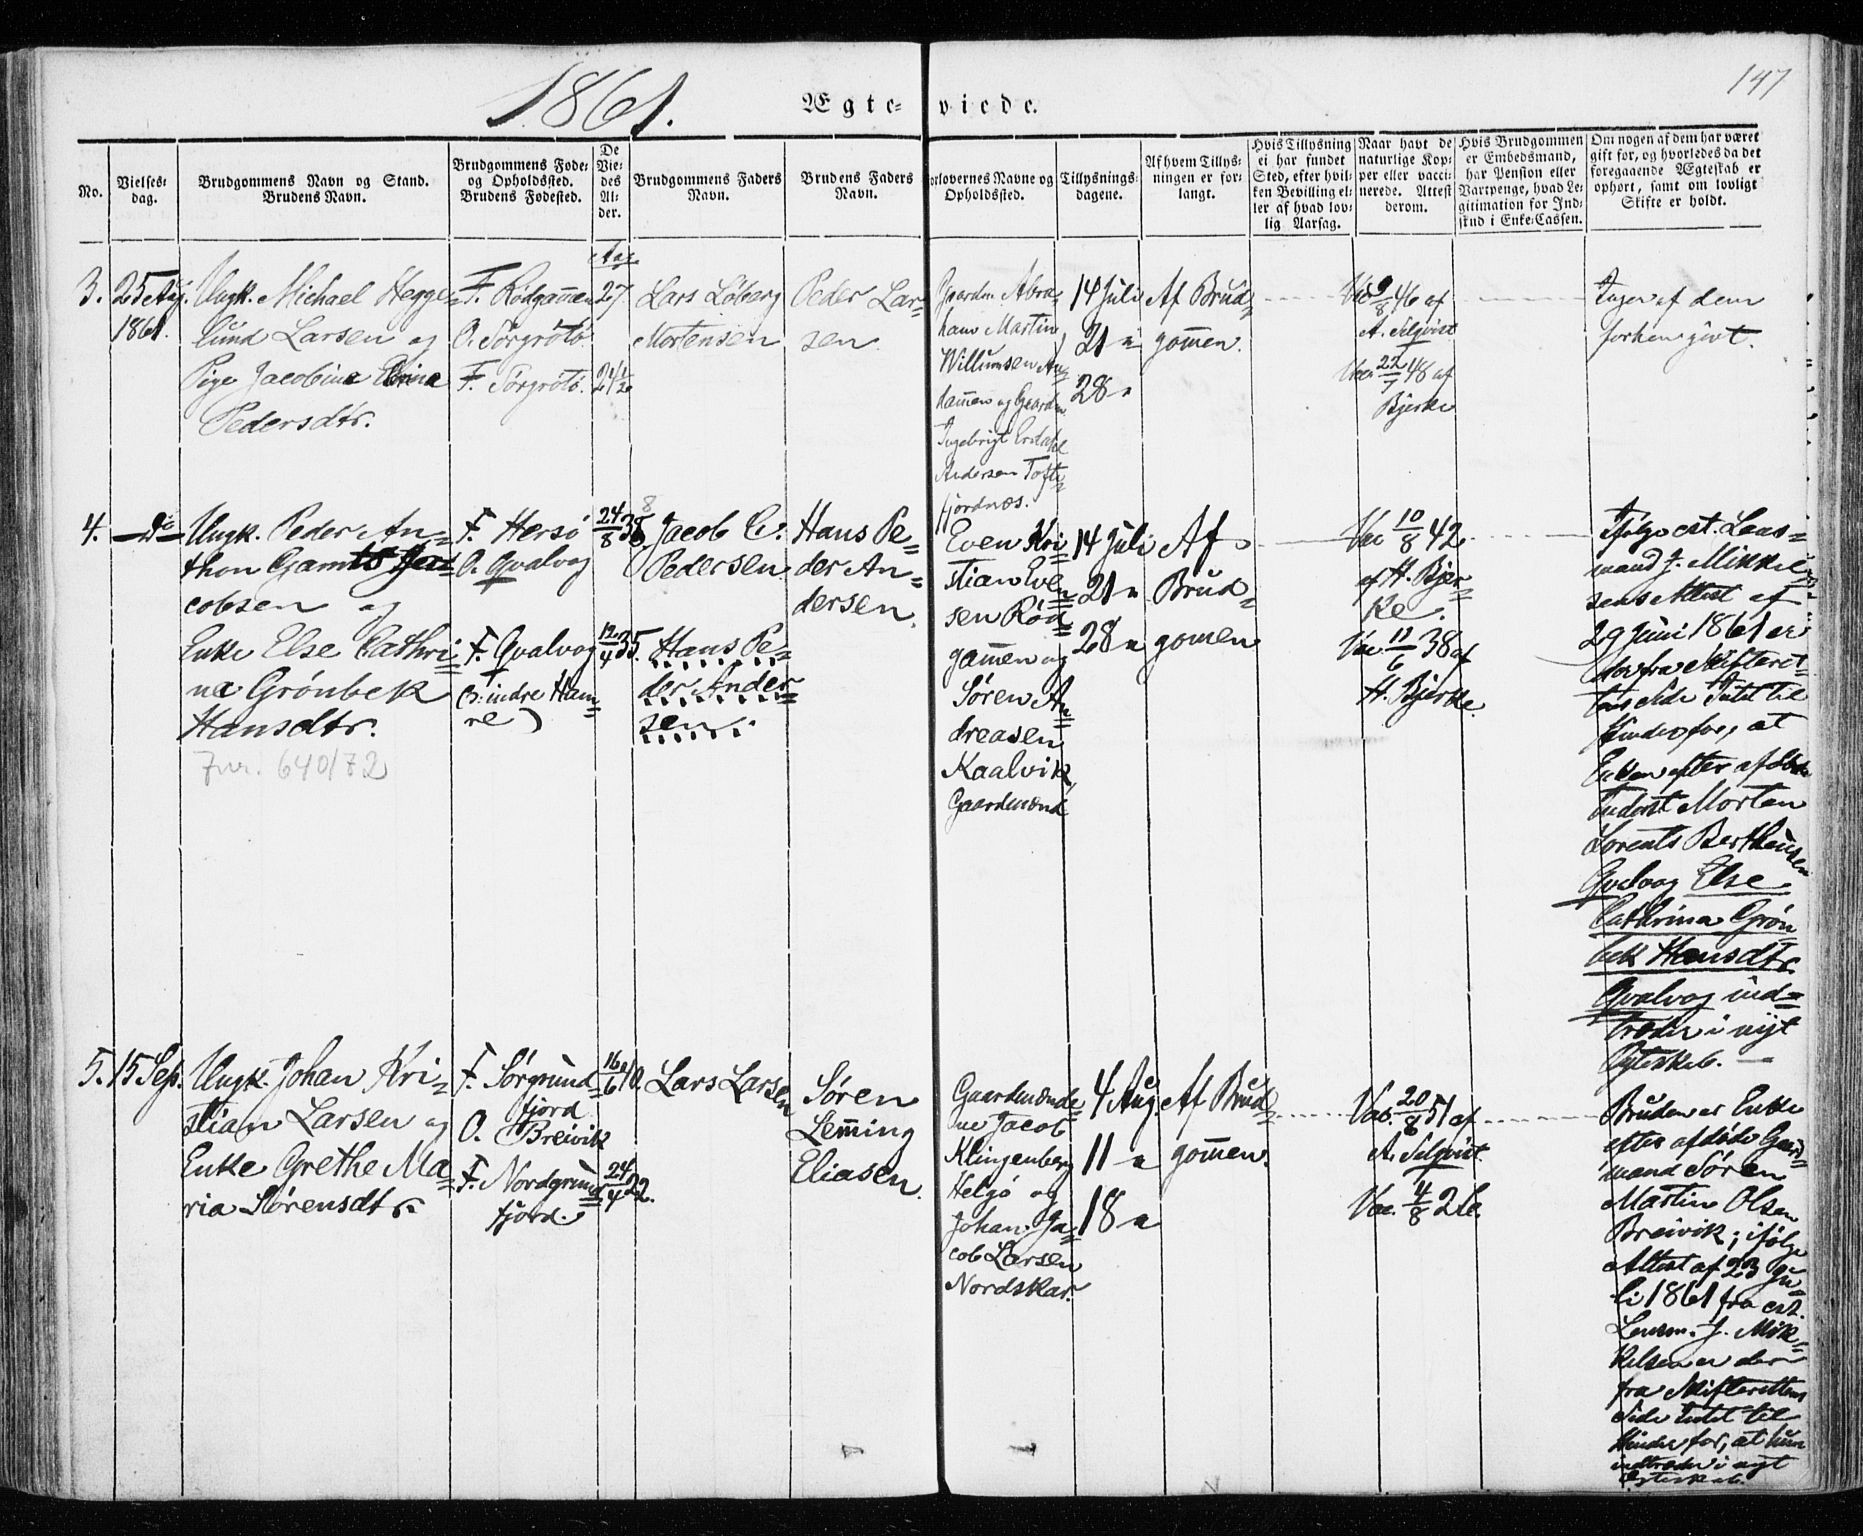 1861.
Ægteviede.
147
No.
Vielses-
dag.
Brudgommens Navn og Stand.
Brudens Navn.
Brudgommens Føde-
og Opholdssted.
Brudens Fødested.
De
Vie-
des
Al-
der.
Brudgommens Faders
Navn.
Brudens Faders
Navn.
orlovernes Navne og
Opholdssted.
Tillysnings-
dagene.
Af hvem Tillys-
ningen er for-
langt.
Hvis Tillysning
ei har fundet
Sted, efter hvil-
ken Bevilling el-
ler af hvad lov-
lig Aarsag.
Naar havt de
naturlige Kop-
per eller vacci-
nerede. Attest
derom.
Hvis Brudgommen
er Embedsmand,
har Pension eller
Vartpenge, hvad Le-
gitimation for Ind-
skud i Enke-Cassen.
Om nogen af dem har været
gift før, og hvorledes da det
foregaaende Ægteskab er
ophørt, samt om lovligt
Skifte er holdt.
3.
25 Aug.
1861.
Ungk. Michael Hegge-
lund Larsen og
Pige Jacobine
Pedersdtr.
F. Rødgammen
O. Sørgrøtø
F. Sørgrøtø.
Aar
27
21 1/2
Lars Løberg
Mortensen
Peder Lar-
sen.
Gaardm. Abra-
ham Martin
Willumsen
hammen og Gaardm.
Ingebrigt Erdahl
Andersen Toft-
fjordnæs.
14 Juli
21 "
28 "
Af Brud-
gommen.
Vac. 9/8 46 af
A. Selqvist
Vac. 22/7 48 af
Bjerke
Ingen af dem
forhen givt.
4.
do
Ungk. Peder An-
thon Gamst Ja-
cobsen og
Enke Else Cathri-
na Grønbek
Hansdtr.
7nr. 640/72
F. Hersø
O. Qvalvog
F. Qvalvog
(O. indre Ham-
re)
24/8 38
8
12/4 35.
Jacob C.
Pedersen
Hans Pe-
der Ander-
sen.
Hans Pe-
der An-
dersen.
Even Kri-
stian Eve-
sen Rød-
gammen og
Søren An-
dreasen
Kaalvik,
Gaardmænd
14 Juli
21 "
28 "
Af
Brud-
gomen
Vac 10/8 42
af H. Bjer-
ke.
Vac. 11/6 38 af
H. Bjerke.
Ifølge cst. Lens-
mand J. Mikkel-
sens Attest af
29 Juni 1861 er
der fra Skifteret-
tens Side Intet til
Hinder for, at
Enken efter afdøde
Inderst Morten
Lorents Bertheusen
Qvalvog Else
Cathrina Grøn-
bek Hansdtr.
Qvalvog ind-
træder i nyt
Ægteskab. —
5.
15 Sep.
Ungk. Johan Kri-
stian Larsen og
Enke Grethe Ma-
ria Sørensdtr.
F. Sørgrund-
fjord
O. Breivik
F. Nordgrund-
fjord.
16/6 40.
24/4 22.
Lars Larsen
Søren
Lemming
Eliasen.
Gaardmænde-
ne Jacob
Klingenberg
Helgø og
Johan Ja-
cob Larsen
Nordskar.
4 Aug.
11 "
18 "
Af Brud-
gommen.
Vac. 20/8 51 af
A. Selqvist.
Vac. 4/8 26.
Bruden er Enke
efter afdøde Gaard-
mand Søren
Martin Olsen
Breivik; ifølge
Attest af 23 Ju-
li 1861 fra cst.
Lensm. J. Mik-
kelsen er der
fra Skifterettens
Side Intet til
Hinder for, at hun
indtræder i nyt
Ægteskab.